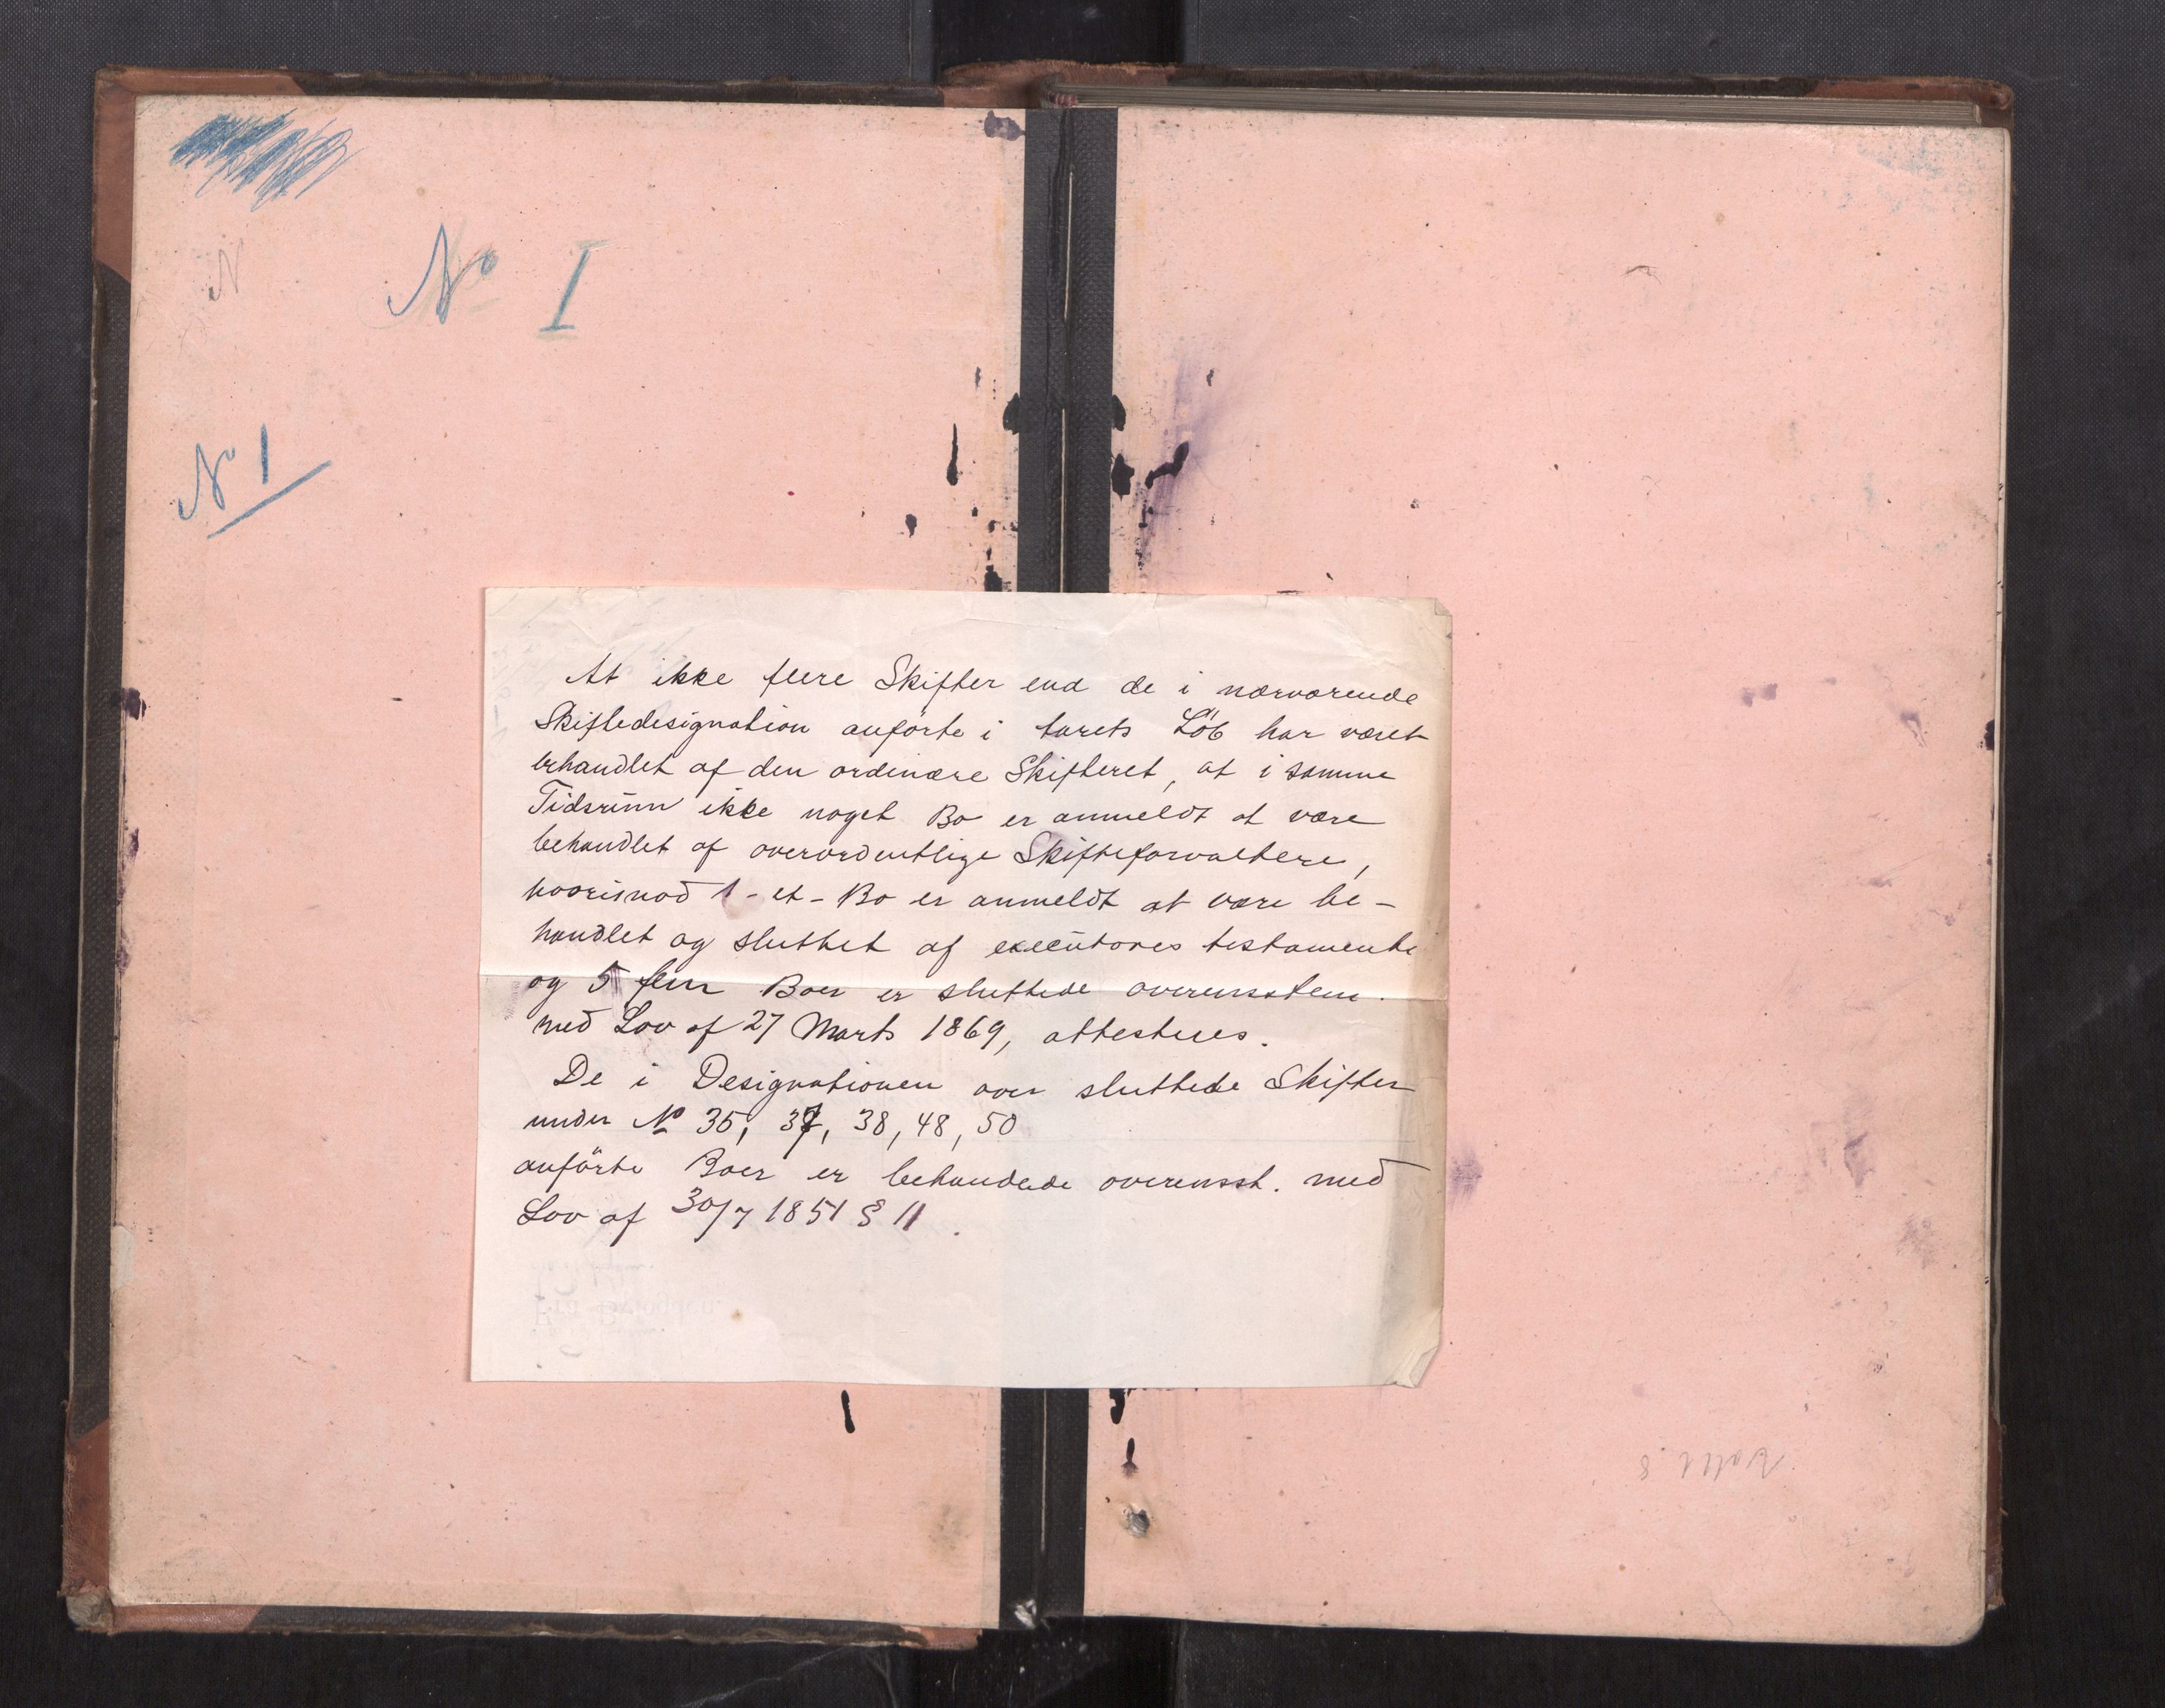 N
No I
No 1
At ikke flere Skifter end de i nærværende
Skiftedesignation anførte i Aarets Løb har været
behandlet af den ordinære Skifteret, at i samme
Tidsrum ikke noget Bo er anmeldt at være
behandlet af overordentlige Skifteforvaltere,
hvorimod 1 - et - Bo er anmeldt at være be-
handlet og sluttet af executores testamenti
og 5 fem Boer er sluttede overensstem.
med Lov af 27 Marts 1869, attesteres.
De i Designationen over sluttede Skifter
under No 35, 37, 38, 48, 50
anførte Boer er behandlede overensst. med
Lov af 30/7 1851 § 11.